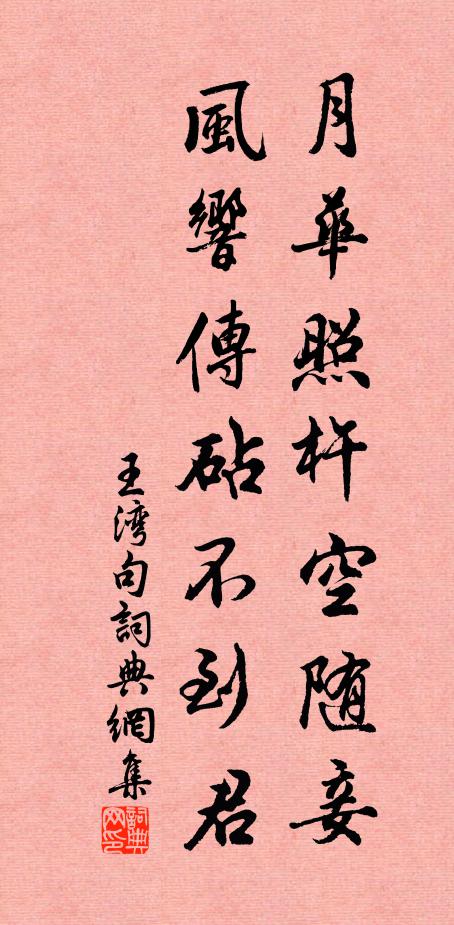 月華照杵空随妾
風響傳砧不到君
王湾句詞典網集
詞典網印